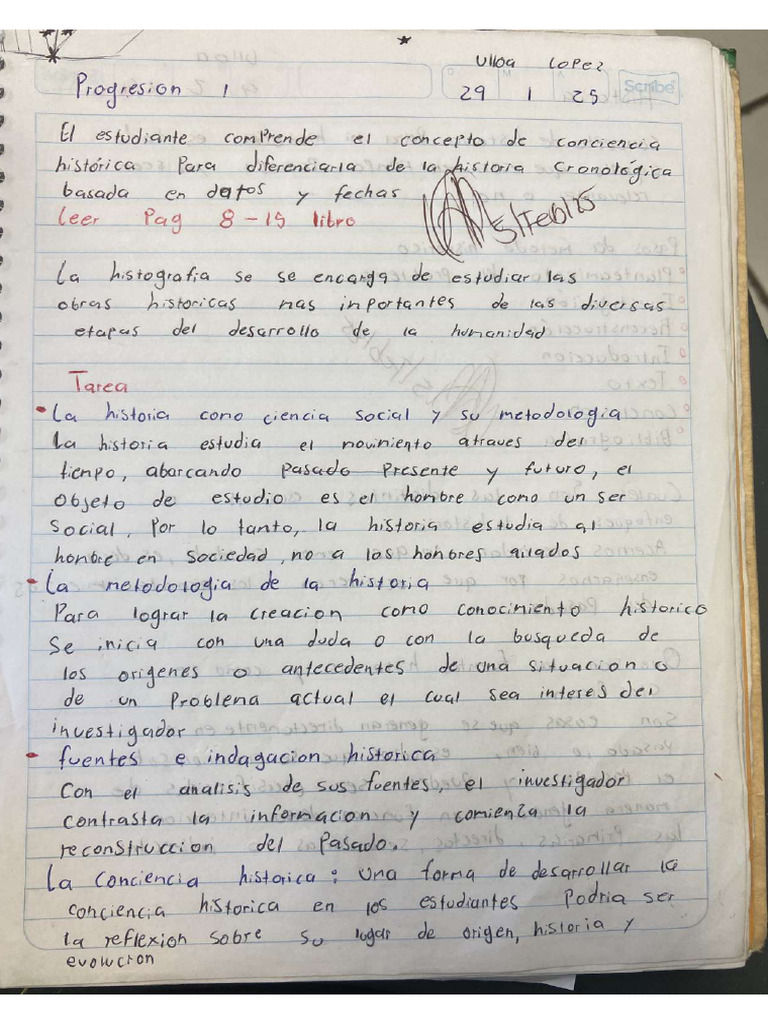 Ulloa Lopez
Progresion 1
29 1 25
Scribe
El estudiante comprende el concepto de conciencia
histórica Para diferenciarla de la historia Cronológica
basada en datos y fechas
leer Pag 8-15 libro
5/feb/25
La histografia se se encarga de estudiar las
obras historicas mas inportantes de las diversas
etapas del desarrollo de la humanidad
Tarea
• La historia como ciencia social y su metodologia
La historia estudia el movimiento atraves del
tiempo, abarcando pasado Presente y futuro, el
objeto de estudio es el hombre como un ser
Social, Por lo tanto, la historia estudia al
hombre en sociedad, no a los honbres ailados
• La metodologia de la historia
Para lograr la creacion como conocimiento historico
Se inicia con una duda o con la busqueda de
los origenes o antecedentes de una situacion o
de un Problema actual el cual sea interes del
investigador
• fuentes e indagacion historica
Con el analisis de sus fuentes, el investigador
contrasta la informacion y comienza la
reconstruccion del Pasado.
La conciencia historica: una forma de desarrollar la
conciencia historica en los estudiantes Podria ser
la reflexion sobre su lugar de origen, historia y
evolucion